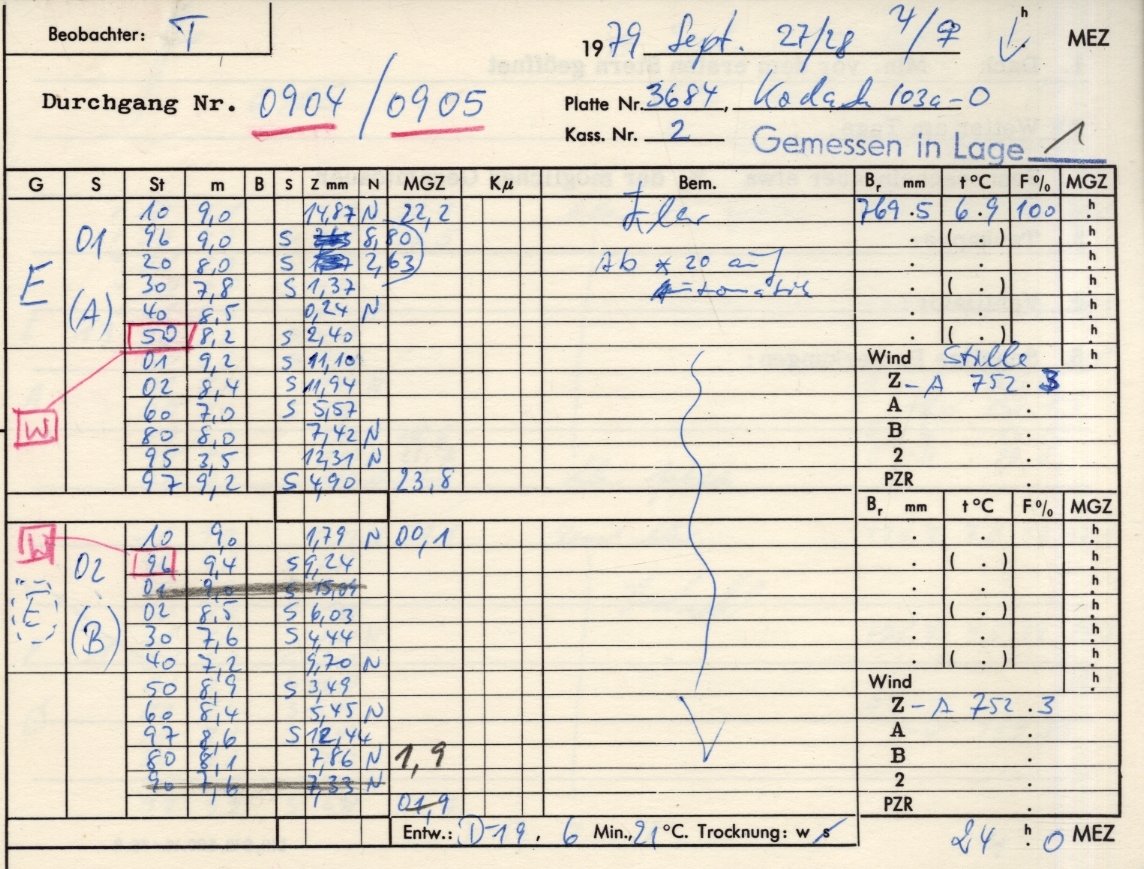 Beobachter: T
1979 Sept. 27/28 MEZ
Durchgang Nr. 0904/0905
Platte Nr. 3684, Kodak 103a-O
Kass. Nr. 2
Gemessen in Lage 1
G S St m B S Z mm N MGZ Kμ Bem. Br mm t°C F% MGZ
10 9,0 14,87 N 22,2 klar 769.5 6.9 100 h
E 01 96 9,0 S 8,80 ( . )
20 8,0 S 2,63 Ab * 20 auf h
30 7,8 S 1,37 Automatik ( . )
(A) 40 8,5 0,24 N h
50 8,2 S 2,40 ( . )
01 9,2 S 11,10 Wind Stille h
02 8,4 S 11,94 Z - A 752.3
W 60 7,0 S 5,57 A .
80 8,0 7,42 N B .
95 3,5 12,31 N 2 .
97 9,2 S 4,90 23,8 PZR
Br mm t°C F% MGZ
W 10 9,0 1,79 N 00,1 h
02 96 9,4 S 9,24 ( . )
01 9,0 S 15,09 h
E 02 8,5 S 6,03 ( . )
(B) 30 7,6 S 4,44 h
40 7,2 9,70 N ( . )
50 8,9 S 3,49 Wind h
60 8,4 5,45 N Z - A 752.3
97 8,6 S 12,44 A .
80 8,1 7,86 N 1,9 B .
90 7,6 7,33 N 2 .
01,9 PZR .
Entw.: D19. 6 Min., 21 °C. Trocknung: w s 24 h 0 MEZ